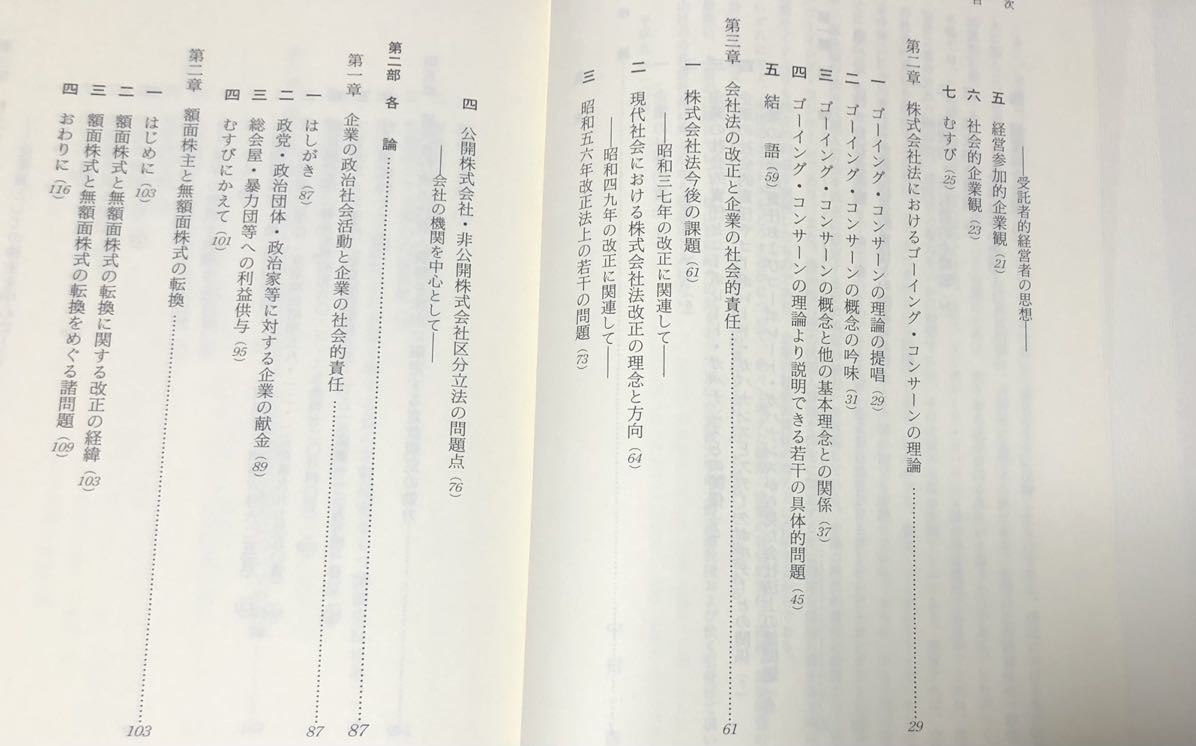 目次
――受託者的経営者の思想――
五 経営参加的企業観 (21)
六 社会的企業観 (23)
七 むすび (25)
第二章 株式会社法におけるゴーイング・コンサーンの理論 …… 29
一 ゴーイング・コンサーンの理論の提唱 (29)
二 ゴーイング・コンサーンの概念の吟味 (31)
三 ゴーイング・コンサーンの概念と他の基本理念との関係 (37)
四 ゴーイング・コンサーンの理論より説明できる若干の具体的問題 (45)
五 結語 (59)
第三章 会社法の改正と企業の社会的責任 …… 61
一 株式会社法今後の課題 (61)
――昭和三七年の改正に関連して――
二 現代社会における株式会社法改正の理念と方向 (64)
――昭和四九年の改正に関連して――
三 昭和五六年改正法上の若干の問題 (73)
四 公開株式会社・非公開株式会社区分立法の問題点 (76)
――会社の機関を中心として――
第二部 各論 …… 87
第一章 企業の政治社会活動と企業の社会的責任 …… 87
一 はしがき (87)
二 政党・政治団体・政治家等に対する企業の献金 (89)
三 総会屋・暴力団等への利益供与 (95)
四 むすびにかえて (101)
第二章 額面株主と無額面株式の転換 …… 103
一 はじめに (103)
二 額面株式と無額面株式の転換に関する改正の経緯 (103)
三 額面株式と無額面株式の転換をめぐる諸問題 (109)
四 おわりに (116)